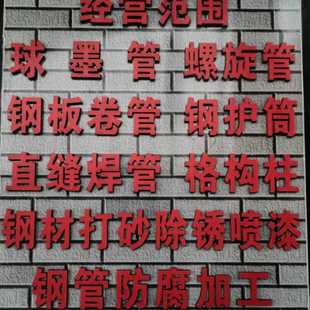 经营范围
球墨管 螺旋管
钢板卷管 钢护筒
直缝焊管 格构柱
钢材打砂除锈喷漆
钢管防腐加工